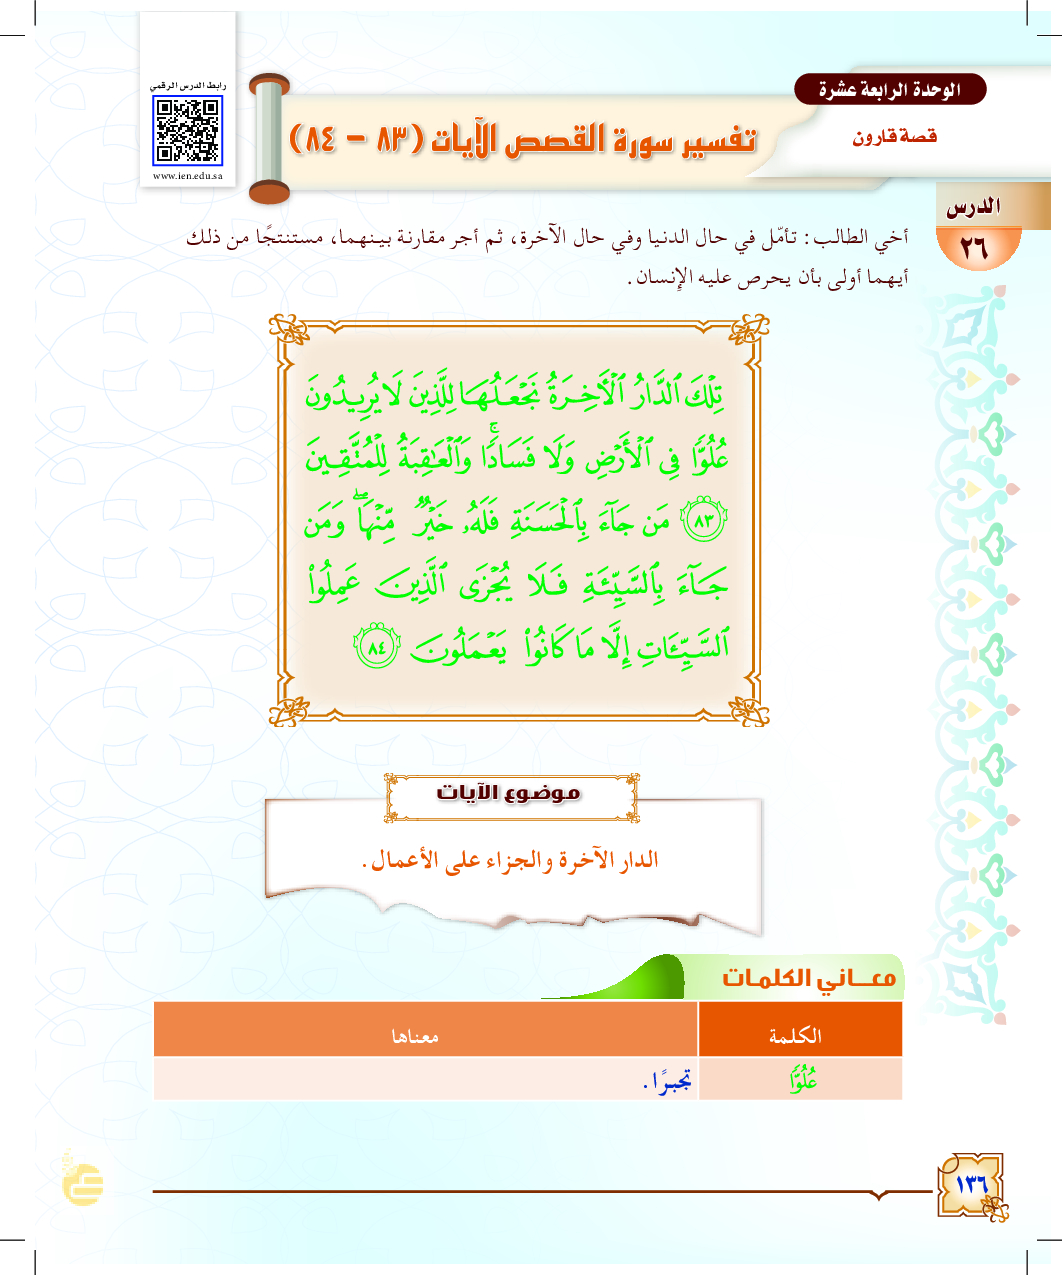 رابط الدرس الرقمي
www.ien.edu.sa
الوحدة الرابعة عشرة
قصة قارون
تفسير سورة القصص الآيات (٨٣ - ٨٤)
الدرس
٢٦
أخي الطالب: تأمّل في حال الدنيا وفي حال الآخرة، ثم أجر مقارنة بينهما، مستنتجًا من ذلك
أيهما أولى بأن يحرص عليه الإنسان.
تِلْكَ ٱلدَّارُ ٱلْأَخِرَةُ نَجْعَلُهَا لِلَّذِينَ لَا يُرِيدُونَ
عُلُوًّا فِي ٱلْأَرْضِ وَلَا فَسَادًا ۚ وَٱلْعَٰقِبَةُ لِلْمُتَّقِينَ
٨٣ مَن جَآءَ بِٱلْحَسَنَةِ فَلَهُۥ خَيْرٌ مِّنْهَا ۖ وَمَن
جَآءَ بِٱلسَّيِّئَةِ فَلَا يُجْزَى ٱلَّذِينَ عَمِلُوا۟
ٱلسَّيِّئَاتِ إِلَّا مَا كَانُوا۟ يَعْمَلُونَ ٨٤
موضوع الآيات
الدار الآخرة والجزاء على الأعمال.
معـــاني الكلمـات
الكلمة
معناها
عُلُوًّا
تجبرًا.
١٣٦